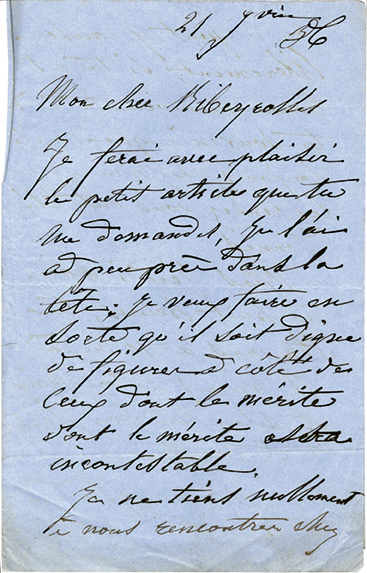 21 juin 56
Mon cher Ribeyrolles
Je ferai avec plaisir
le petit article que tu
me demandes, je l'ai
à peu près dans la
tête; je veux faire en
sorte qu'il soit digne
de figurer à côté de
ceux dont le mérite
dont le mérite sera
incontestable.
Je ne tiens nullement
à nous rencontrer chez